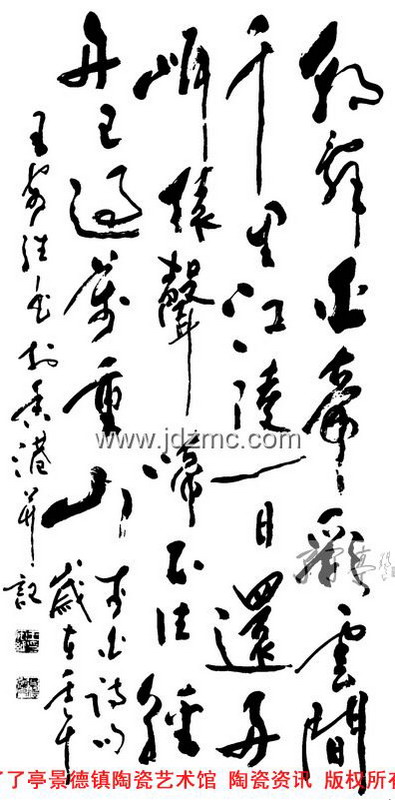 朝辭白帝彩雲間
千里江陵一日還兩
岸猿聲啼不住輕
舟已過萬重山
李白詩
歲在
王
書於香港并記
www.jdzmc.com
了亭景德镇陶瓷艺术馆 陶瓷资讯 版权所有